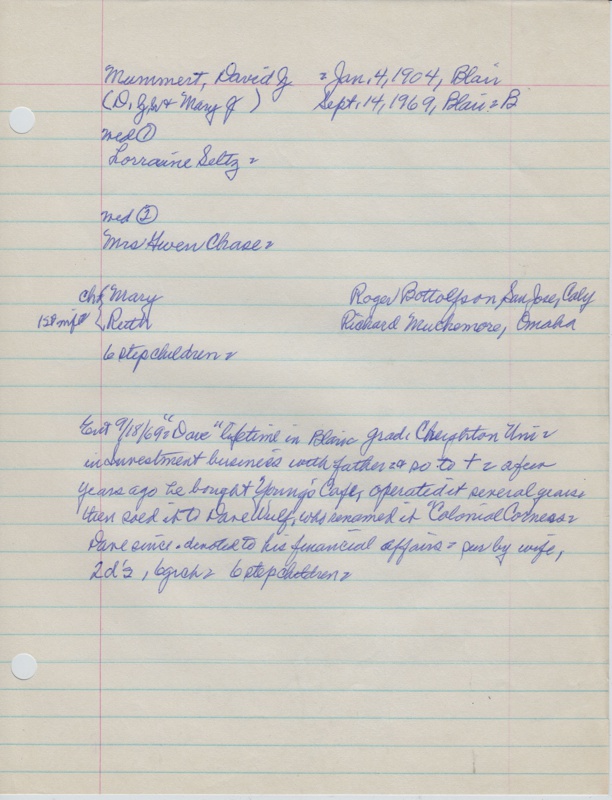 Mummert, David J = Jan, 4, 1904, Blair
(D. J, & Mary J) Sept, 14, 1969, Blair = B
wed ①
Lorraine Seltz =
wed ②
Mrs Gwen Chase =
ch Mary Roger Bottolfson San Jose, Calif
1st mge Ruth Richard Muckemore, Omaha
6 stepchildren =
Ent 9/18/69 = "Dave" lifetime in Blair grad. Creighton Uni =
in investment business with father = & so to + = a few
years ago he bought Young's Cafe, operated it several years =
then sold it to Dave Wulf, who renamed it "Colonial Corness =
Dave since devoted to his financial affairs = sur by wife,
2 d's, 6 grch = 6 stepchildren =